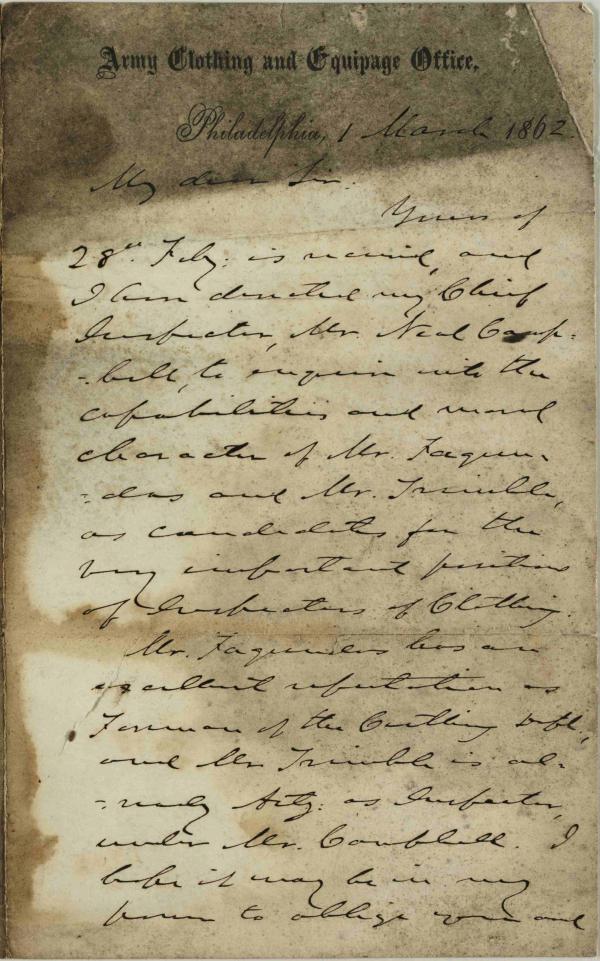 Army Clothing and Equipage Office.
Philadelphia, 1 March 1862.
My dear Sir.
Yours of
28" Feby. is received, and
I have directed my Chief
Inspector, Mr. Neal Camp=
=bell, to enquire into the
capabilities and moral
character of Mr. Fagun=
=das and Mr. Trimble,
as candidates for the
very important positions
of Inspectors of Clothing.
Mr. Fagundas has an
excellent reputation as
Foreman of the Cutting Dept,
and Mr. Trimble is al=
=ready Actg: as Inspector,
under Mr. Campbell. I
hope it may be in my
power to oblige you and